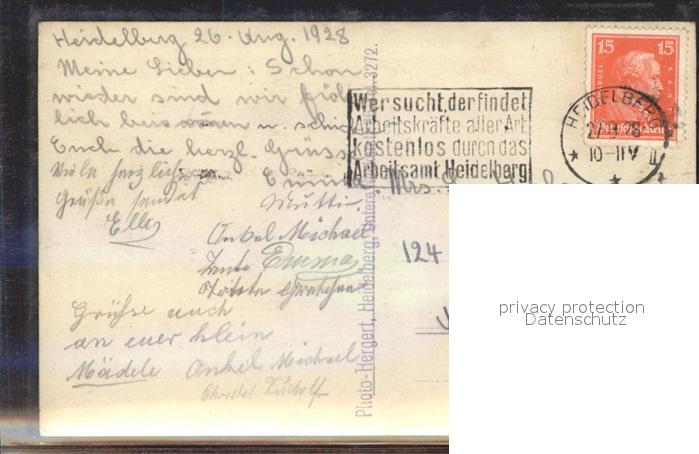 Heidelberg 26. Aug. 1928
Meine Lieben: Schon
wieder sind wir fröh-
lich u. schi
Euch die herzl. Grüsse
Viele herzliche
Grüße sendet
Elly
Emma
Mutti
Onkel Michael
Tante Emma
Gretchen
Grüße auch
an euer klein
Mädele Onkel Michael
Rudolf
Wer sucht, der findet
Arbeitskräfte aller Art
kostenlos durch das
Arbeitsamt Heidelberg
15 15
Deutsches Reich
HEIDELBERG
10-11V
Mrs.
124
Photo-Hergert, Heidelberg, Untere 3272.
privacy protection
Datenschutz